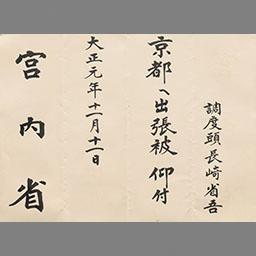 調度頭長崎省吾
京都へ出張被 仰付
大正元年十一月十一日
宮内省